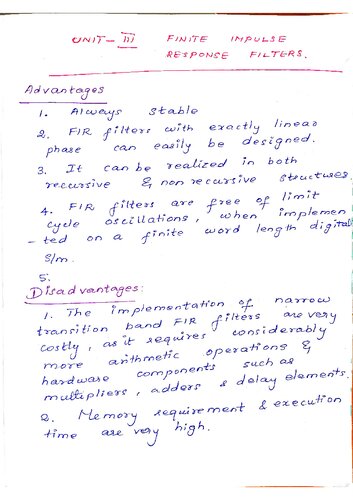 UNIT-III FINITE IMPULSE
RESPONSE FILTERS.
Advantages
1. Always stable
2. FIR filters with exactly linear
phase can easily be designed.
3. It can be realized in both
recursive & non recursive structures
4. FIR filters are free of limit
cycle oscillations, when implemen
-ted on a finite word length digital
s/m.
5.
Disadvantages:
1. The implementation of narrow
transition band FIR filters are very
costly, as it requires considerably
more arithmetic operations &
hardware components such as
multipliers, adders & delay elements.
2. Memory requirement & execution
time are very high.